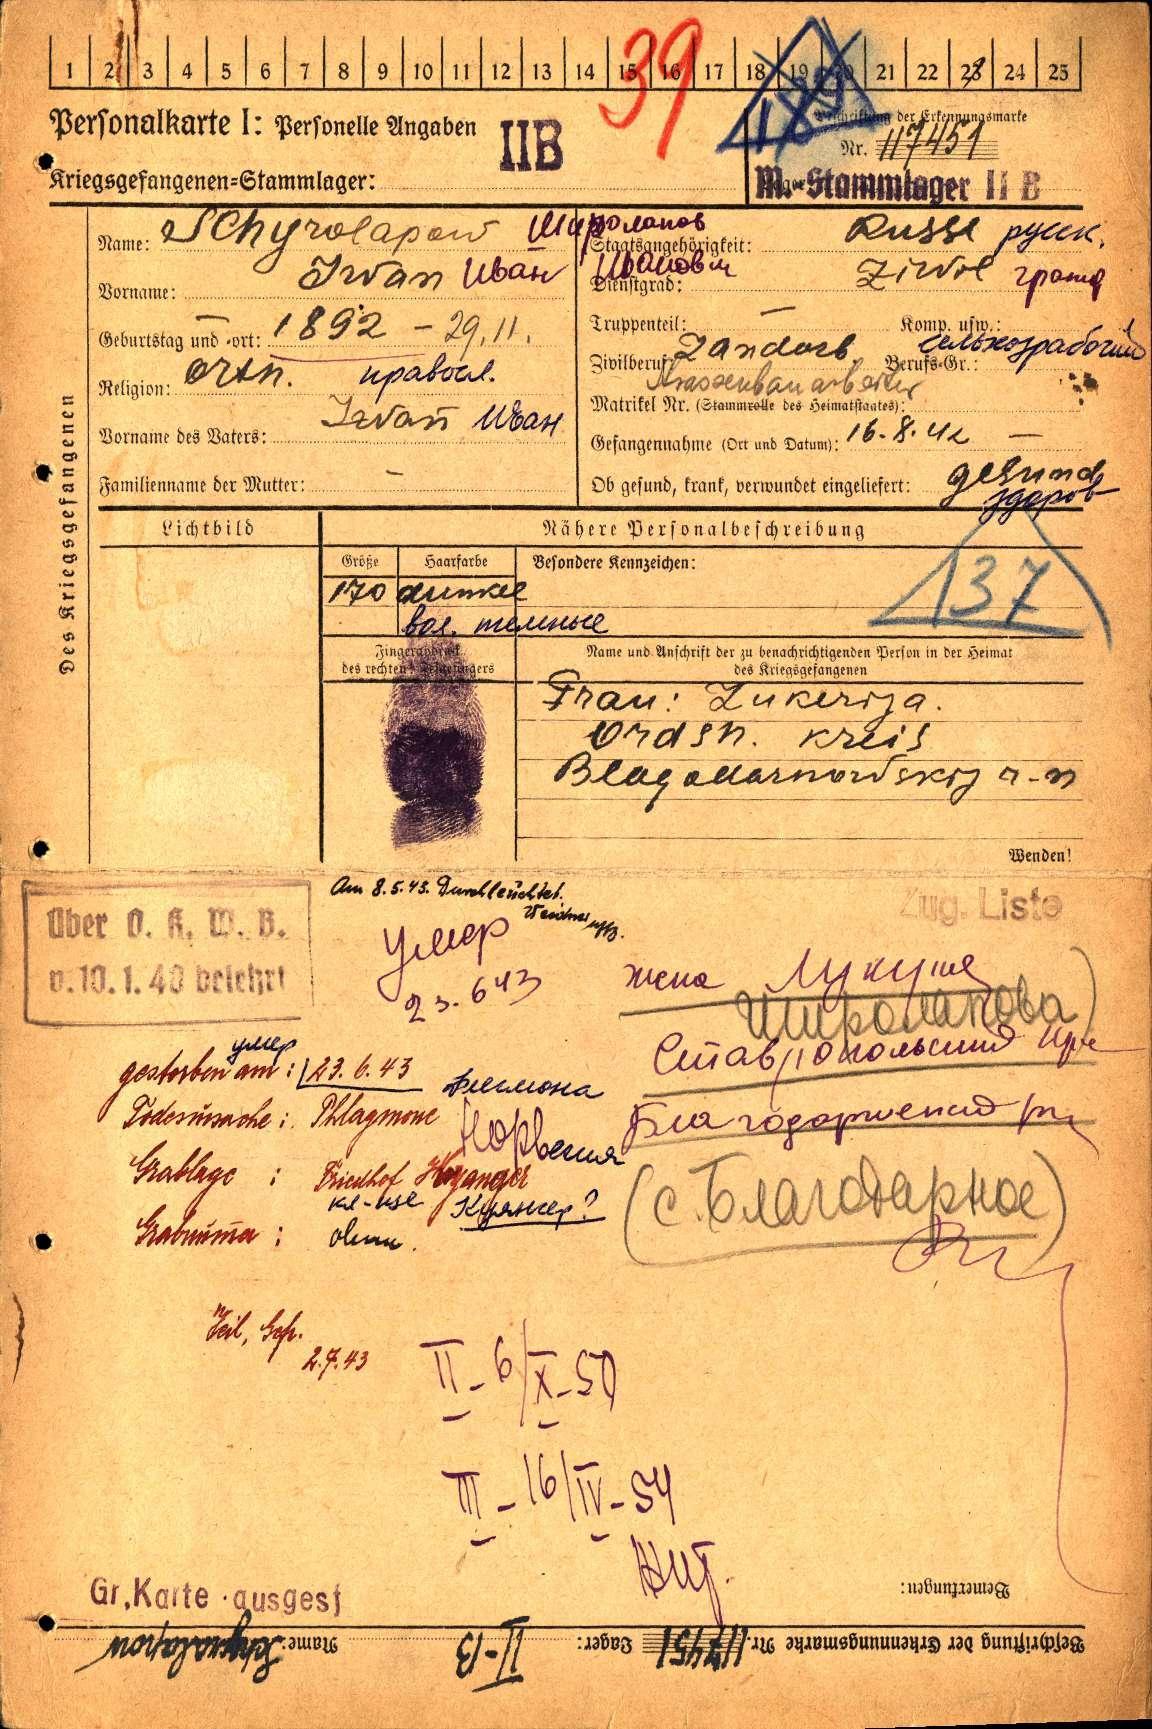 1 2 3 4 5 6 7 8 9 10 11 12 13 14 15 16 17 18 19 20 21 22 23 24 25
39
189
Personalkarte I: Personelle Angaben
IIB
Beschriftung der Erkennungsmarke
Nr. 117451
Kriegsgefangenen=Stammlager:
M.-Stammlager II B
Des Kriegsgefangenen
Name: Schyrolapow Широлапов
Staatsangehörigkeit: Russe русск.
Vorname: Iwan Иван Иванович
Dienstgrad: Zivil гражд
Geburtstag und -ort: 1892 – 29.11.
Truppenteil: –
Komp. usw.:
Zivilberuf: Landarb. сельхозрабочий
Berufs-Gr.:
Strassenbauarbeiter
Religion: orth. правосл.
Matrikel Nr. (Stammrolle des Heimatstaates):
Vorname des Vaters: Iwan Иван
Gefangennahme (Ort und Datum): 16.8.42 –
Familienname der Mutter: –
Ob gesund, krank, verwundet eingeliefert: gesund
здоров
Lichtbild
Nähere Personalbeschreibung
Größe
Haarfarbe
Besondere Kennzeichen:
170 dunkel
вол. темные
137
Fingerabdruck
des rechten Zeigefingers
Name und Anschrift der zu benachrichtigenden Person in der Heimat
des Kriegsgefangenen
Frau: Lukerija.
Ordsh. Kreis
Blagodarnowskij r-n
Wenden!
Am 8.5.43. Durchleuchtet.
Über O. K. W. B.
v. 10. 1. 40 belehrt
Zug. Liste
умер
23.6 43
жена
Широлапова)
Ставропольский
gestorben am: 23.6.43
умер
Флегмона
Todesursache: Phlagmone
Норвегия
Благодарненский
Grablage : Friedhof
кл-ще Куянгер?
(с. Благодарное)
Grabnummer : ohne.
2.7.43
II – 6/X – 50
III – 16/IV – 54
Gr. Karte ausgest
Bemerkungen:
Beschriftung der Erkennungsmarke Nr. 117451 Lager: II-B Name: Schyrolapow